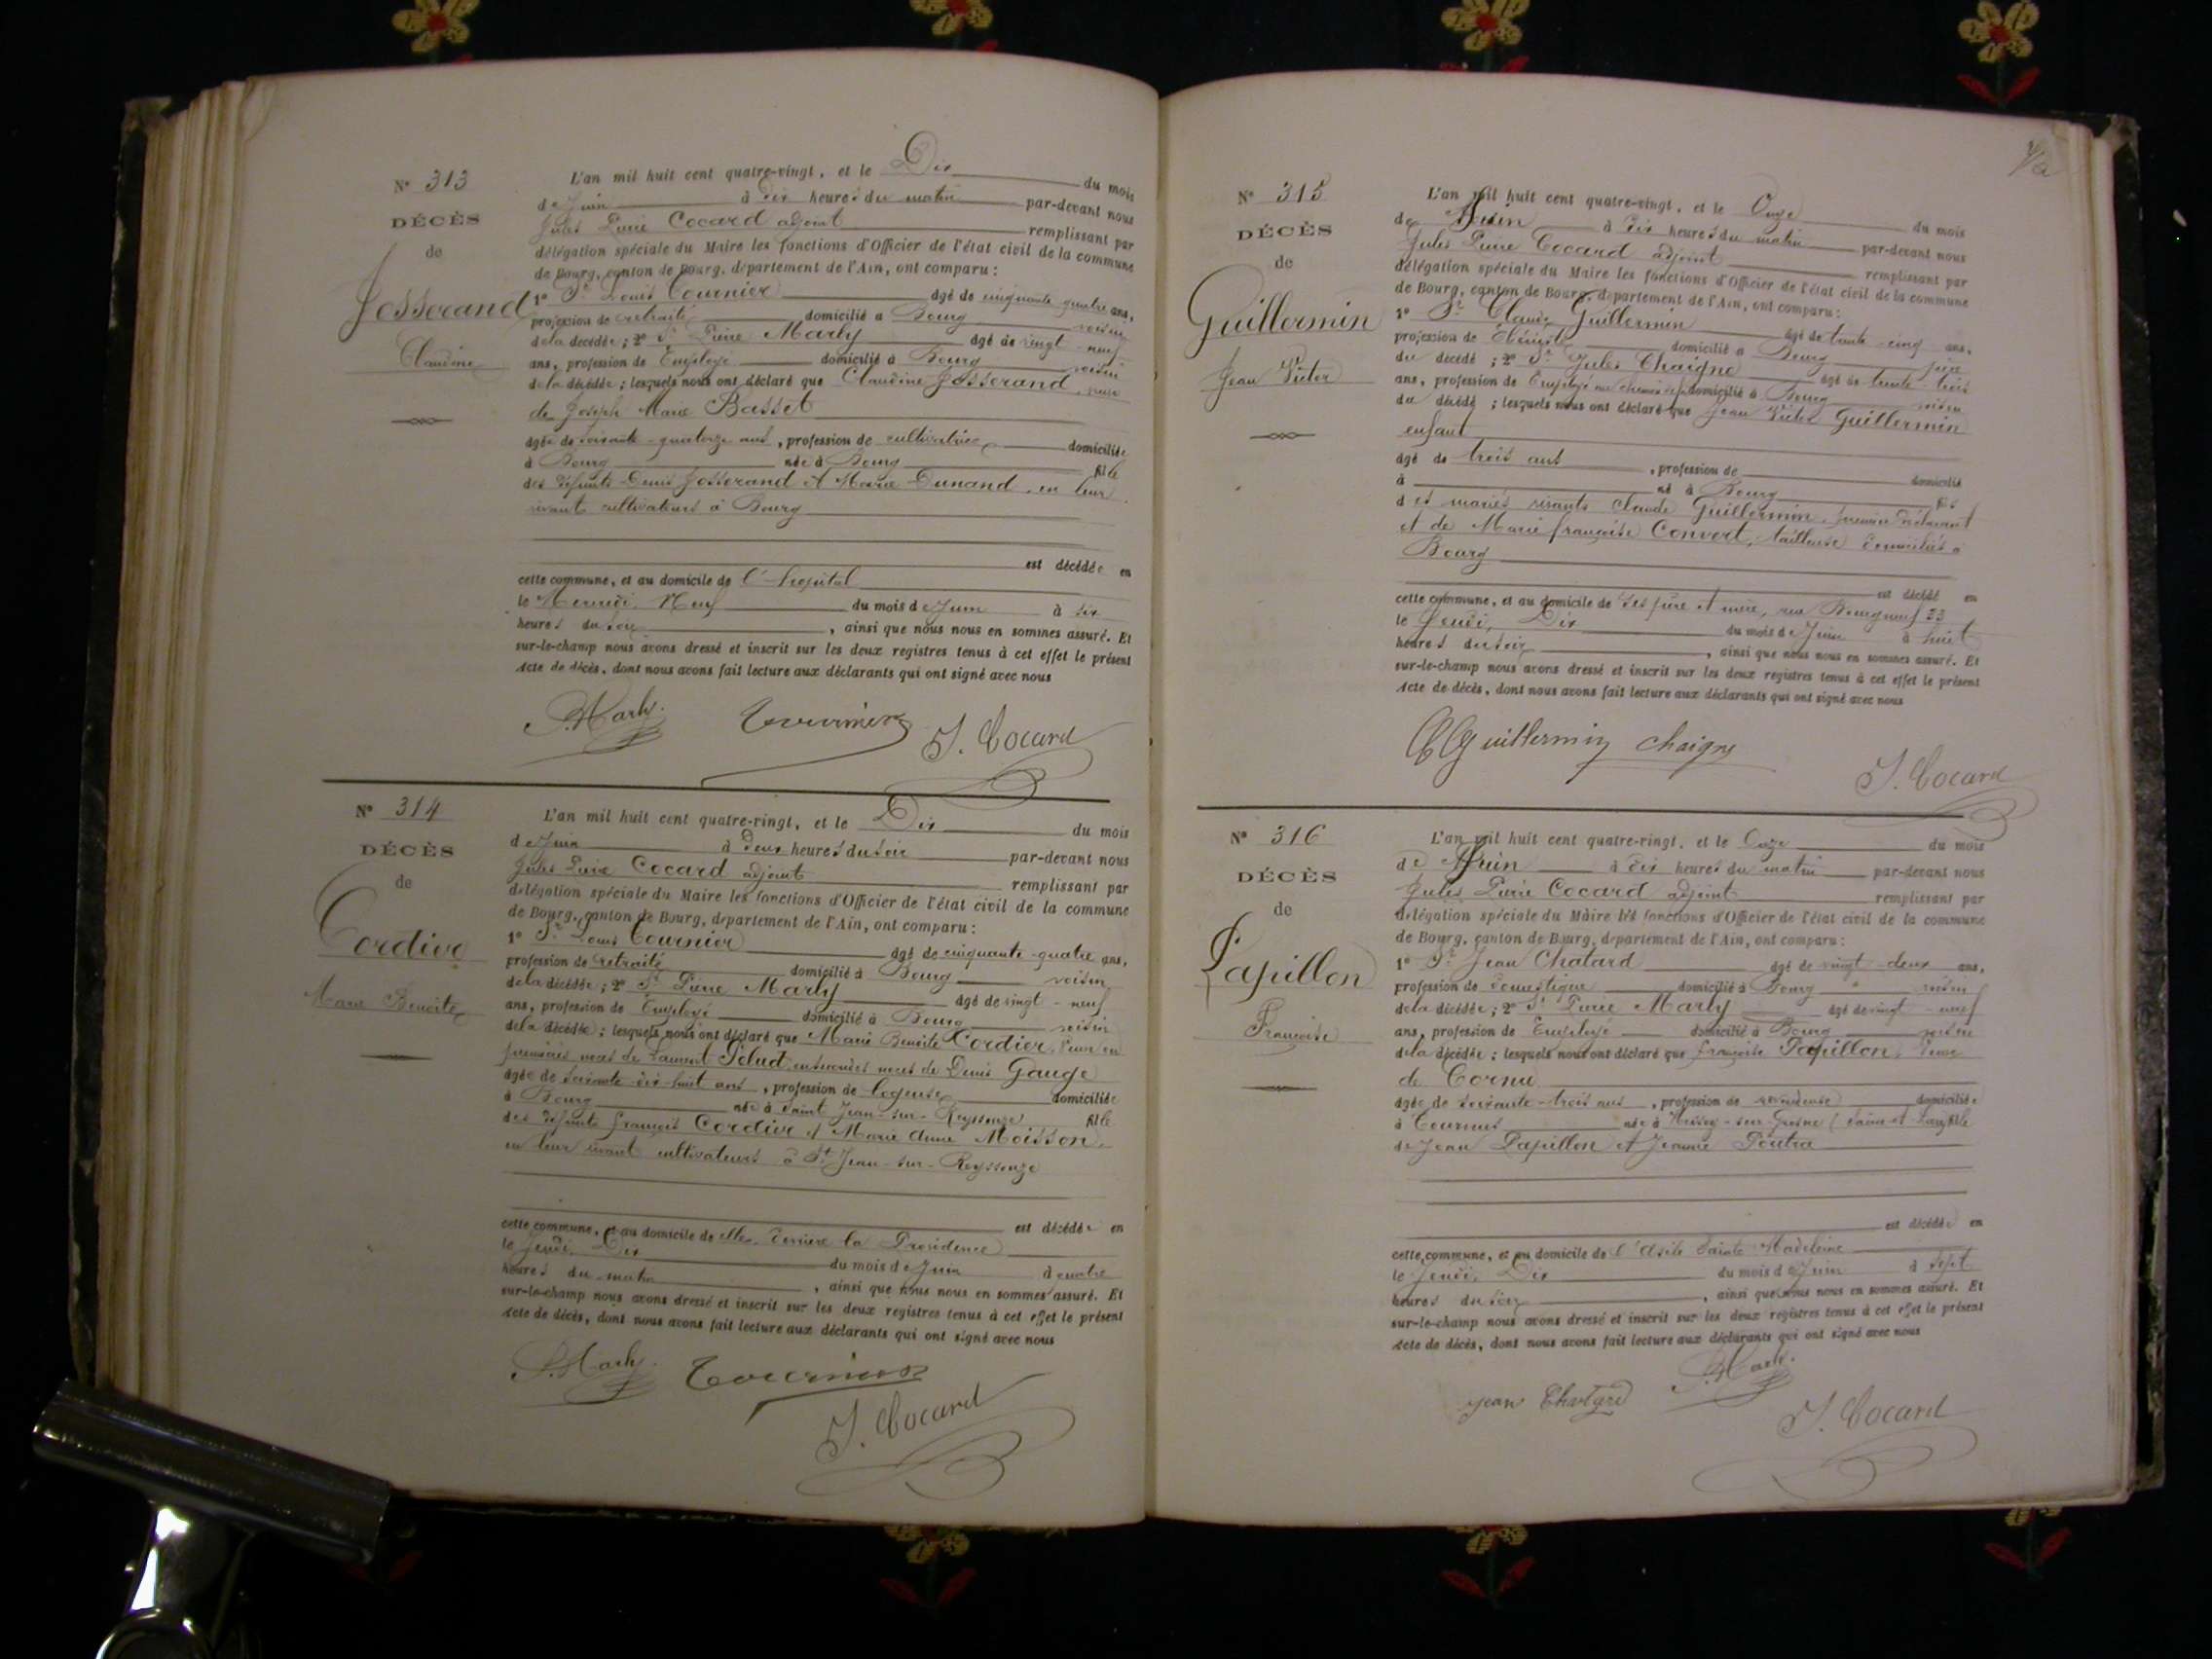 N° 313
DÉCÈS
de
Josserand
Claudine
L'an mil huit cent quatre-vingt, et le Dix du mois
de Juin à dix heures du matin par-devant nous
Jules Pierre Cocard adjoint remplissant par
délégation spéciale du Maire les fonctions d'Officier de l'état civil de la commune
de Bourg, canton de Bourg, département de l'Ain, ont comparu :
1° Sr Louis Tournier âgé de cinquante quatre ans,
profession de retraité domicilié à Bourg voisin
de la décédée ; 2° Sr Pierre Marly âgé de vingt-neuf
ans, profession de Employé domicilié à Bourg voisin
de la décédée ; lesquels nous ont déclaré que Claudine Josserand, veuve
de Joseph Marie Basset
âgée de soixante-quatorze ans, profession de cultivatrice domiciliée
à Bourg née à Bourg fille
des défunts Denis Josserand et Marie Dunand, en leur
vivant cultivateurs à Bourg
est décédée en
cette commune, et au domicile de l'hopital
le Mercredi, Neuf du mois de Juin à six
heures du soir, ainsi que nous nous en sommes assuré. Et
sur-le-champ nous avons dressé et inscrit sur les deux registres tenus à cet effet le présent
acte de décès, dont nous avons fait lecture aux déclarants qui ont signé avec nous
P. Marly Tournier J. Cocard
N° 314
DÉCÈS
de
Cordier
Marie Benoite
L'an mil huit cent quatre-vingt, et le Dix du mois
de Juin à deux heures du soir par-devant nous
Jules Pierre Cocard adjoint remplissant par
délégation spéciale du Maire les fonctions d'Officier de l'état civil de la commune
de Bourg, canton de Bourg, département de l'Ain, ont comparu :
1° Sr Louis Tournier âgé de cinquante-quatre ans,
profession de retraité domicilié à Bourg voisin
de la décédée ; 2° Sr Pierre Marly âgé de vingt-neuf
ans, profession de Employé domicilié à Bourg voisin
de la décédée ; lesquels nous ont déclaré que Marie Benoite Cordier, Veuve en
premières noces de Laurent Pelud, en secondes noces de Denis Gauge
âgée de soixante-dix-huit ans, profession de logeuse domiciliée
à Bourg née à Saint Jean-sur-Reyssouze fille
des défunts François Cordier et Marie Anne Moisson,
en leur vivant cultivateurs à St Jean-sur-Reyssouze
est décédée en
cette commune, et au domicile de elle, derrière la Providence
le Jeudi, Dix du mois de Juin à quatre
heures du matin, ainsi que nous nous en sommes assuré. Et
sur-le-champ nous avons dressé et inscrit sur les deux registres tenus à cet effet le présent
acte de décès, dont nous avons fait lecture aux déclarants qui ont signé avec nous
P. Marly Tournier
J. Cocard
N° 315
DÉCÈS
de
Guillermin
Jean Victor
L'an mil huit cent quatre-vingt, et le Onze du mois
de Juin à dix heures du matin par-devant nous
Jules Pierre Cocard adjoint remplissant par
délégation spéciale du Maire les fonctions d'Officier de l'état civil de la commune
de Bourg, canton de Bourg, département de l'Ain, ont comparu :
1° Sr Claude Guillermin âgé de trente-cinq ans,
profession de Ebéniste domicilié à Bourg père
du décédé ; 2° Sr Jules Chaigne âgé de trente-trois
ans, profession de Employé au chemin de fer domicilié à Bourg voisin
du décédé ; lesquels nous ont déclaré que Jean Victor Guillermin
enfant
âgé de trois ans, profession de domicilié
à né à Bourg fils
des mariés vivants Claude Guillermin, premier déclarant
et de Marie Françoise Convert, tailleuse domiciliés à
Bourg
est décédé en
cette commune, et au domicile de ses père et mère, rue Bourgneuf 33
le Jeudi, Dix du mois de Juin à huit
heures du soir, ainsi que nous nous en sommes assuré. Et
sur-le-champ nous avons dressé et inscrit sur les deux registres tenus à cet effet le présent
acte de décès, dont nous avons fait lecture aux déclarants qui ont signé avec nous
Guillermin Chaigne
J. Cocard
N° 316
DÉCÈS
de
Papillon
Françoise
L'an mil huit cent quatre-vingt, et le Onze du mois
de Juin à dix heures du matin par-devant nous
Jules Pierre Cocard adjoint remplissant par
délégation spéciale du Maire les fonctions d'Officier de l'état civil de la commune
de Bourg, canton de Bourg, département de l'Ain, ont comparu :
1° Sr Jean Chatard âgé de vingt-deux ans,
profession de domestique domicilié à Bourg voisin
de la décédée ; 2° Sr Pierre Marly âgé de vingt-neuf
ans, profession de Employé domicilié à Bourg voisin
de la décédée ; lesquels nous ont déclaré que Françoise Papillon, Veuve
de Cornu
âgée de soixante-trois ans, profession de revendeuse domiciliée
à Tournus née à Messey-sur-Grosne (Saône-et-Loire) fille
de Jean Papillon et Jeanne Poutra
est décédée en
cette commune, et au domicile de l'Asile Sainte Madeleine
le Jeudi, Dix du mois de Juin à sept
heures du soir, ainsi que nous nous en sommes assuré. Et
sur-le-champ nous avons dressé et inscrit sur les deux registres tenus à cet effet le présent
acte de décès, dont nous avons fait lecture aux déclarants qui ont signé avec nous
P. Marly
Jean
J. Cocard